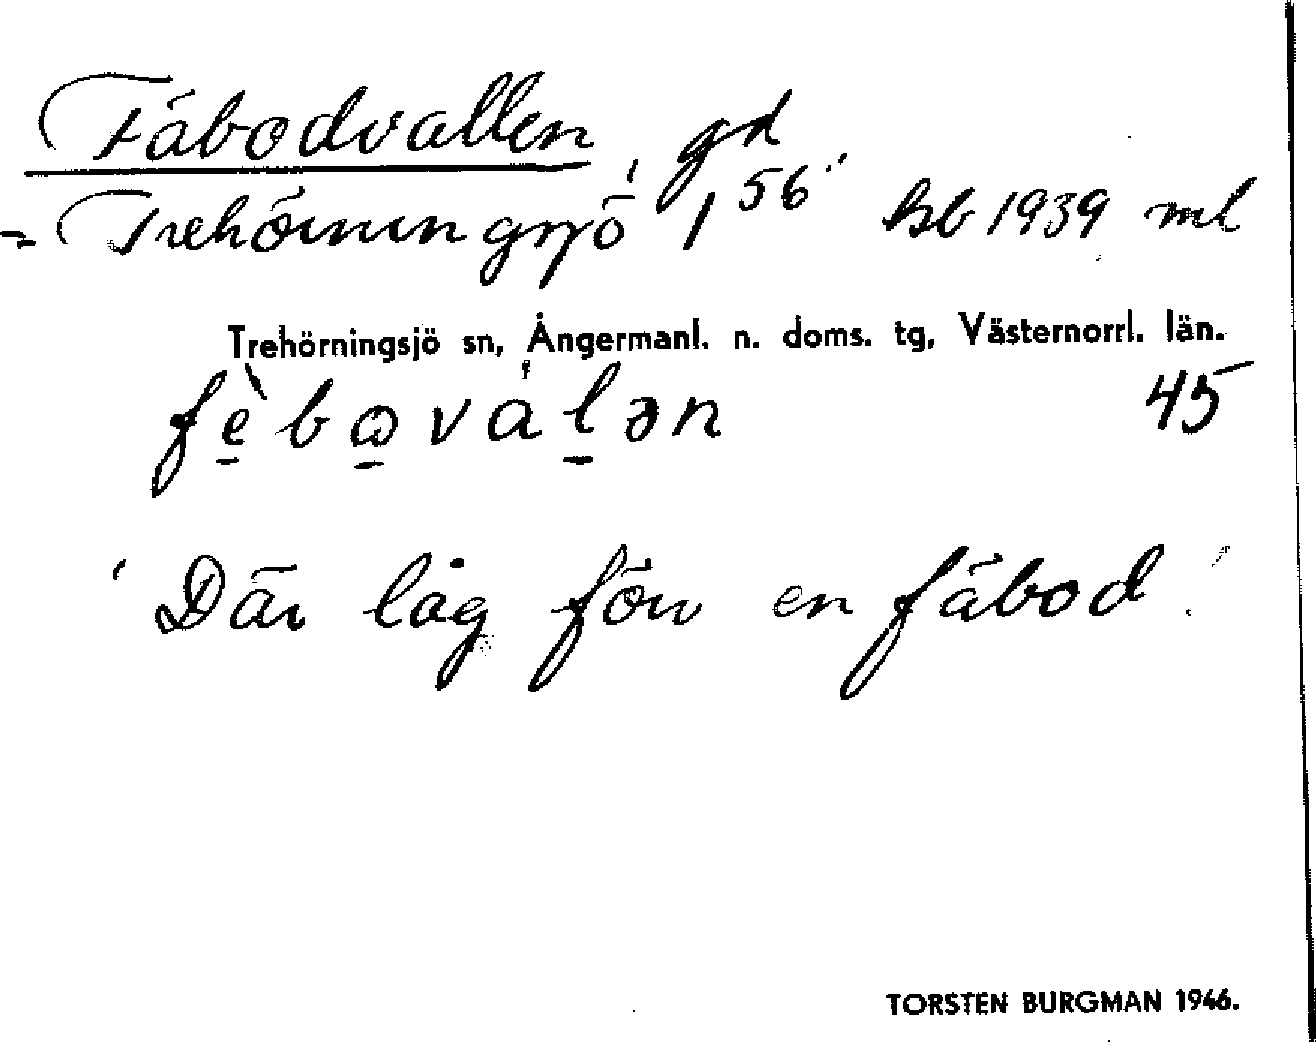 Fäbodvallen, gd
= Trehörningsjö 1 56 Bb 1939 ml
Trehörningsjö sn, Ångermanl. n. doms. tg, Västernorrl. län.
fèbo̱váḻən 45
'Där låg förr en fäbod.'
TORSTEN BURGMAN 1946.